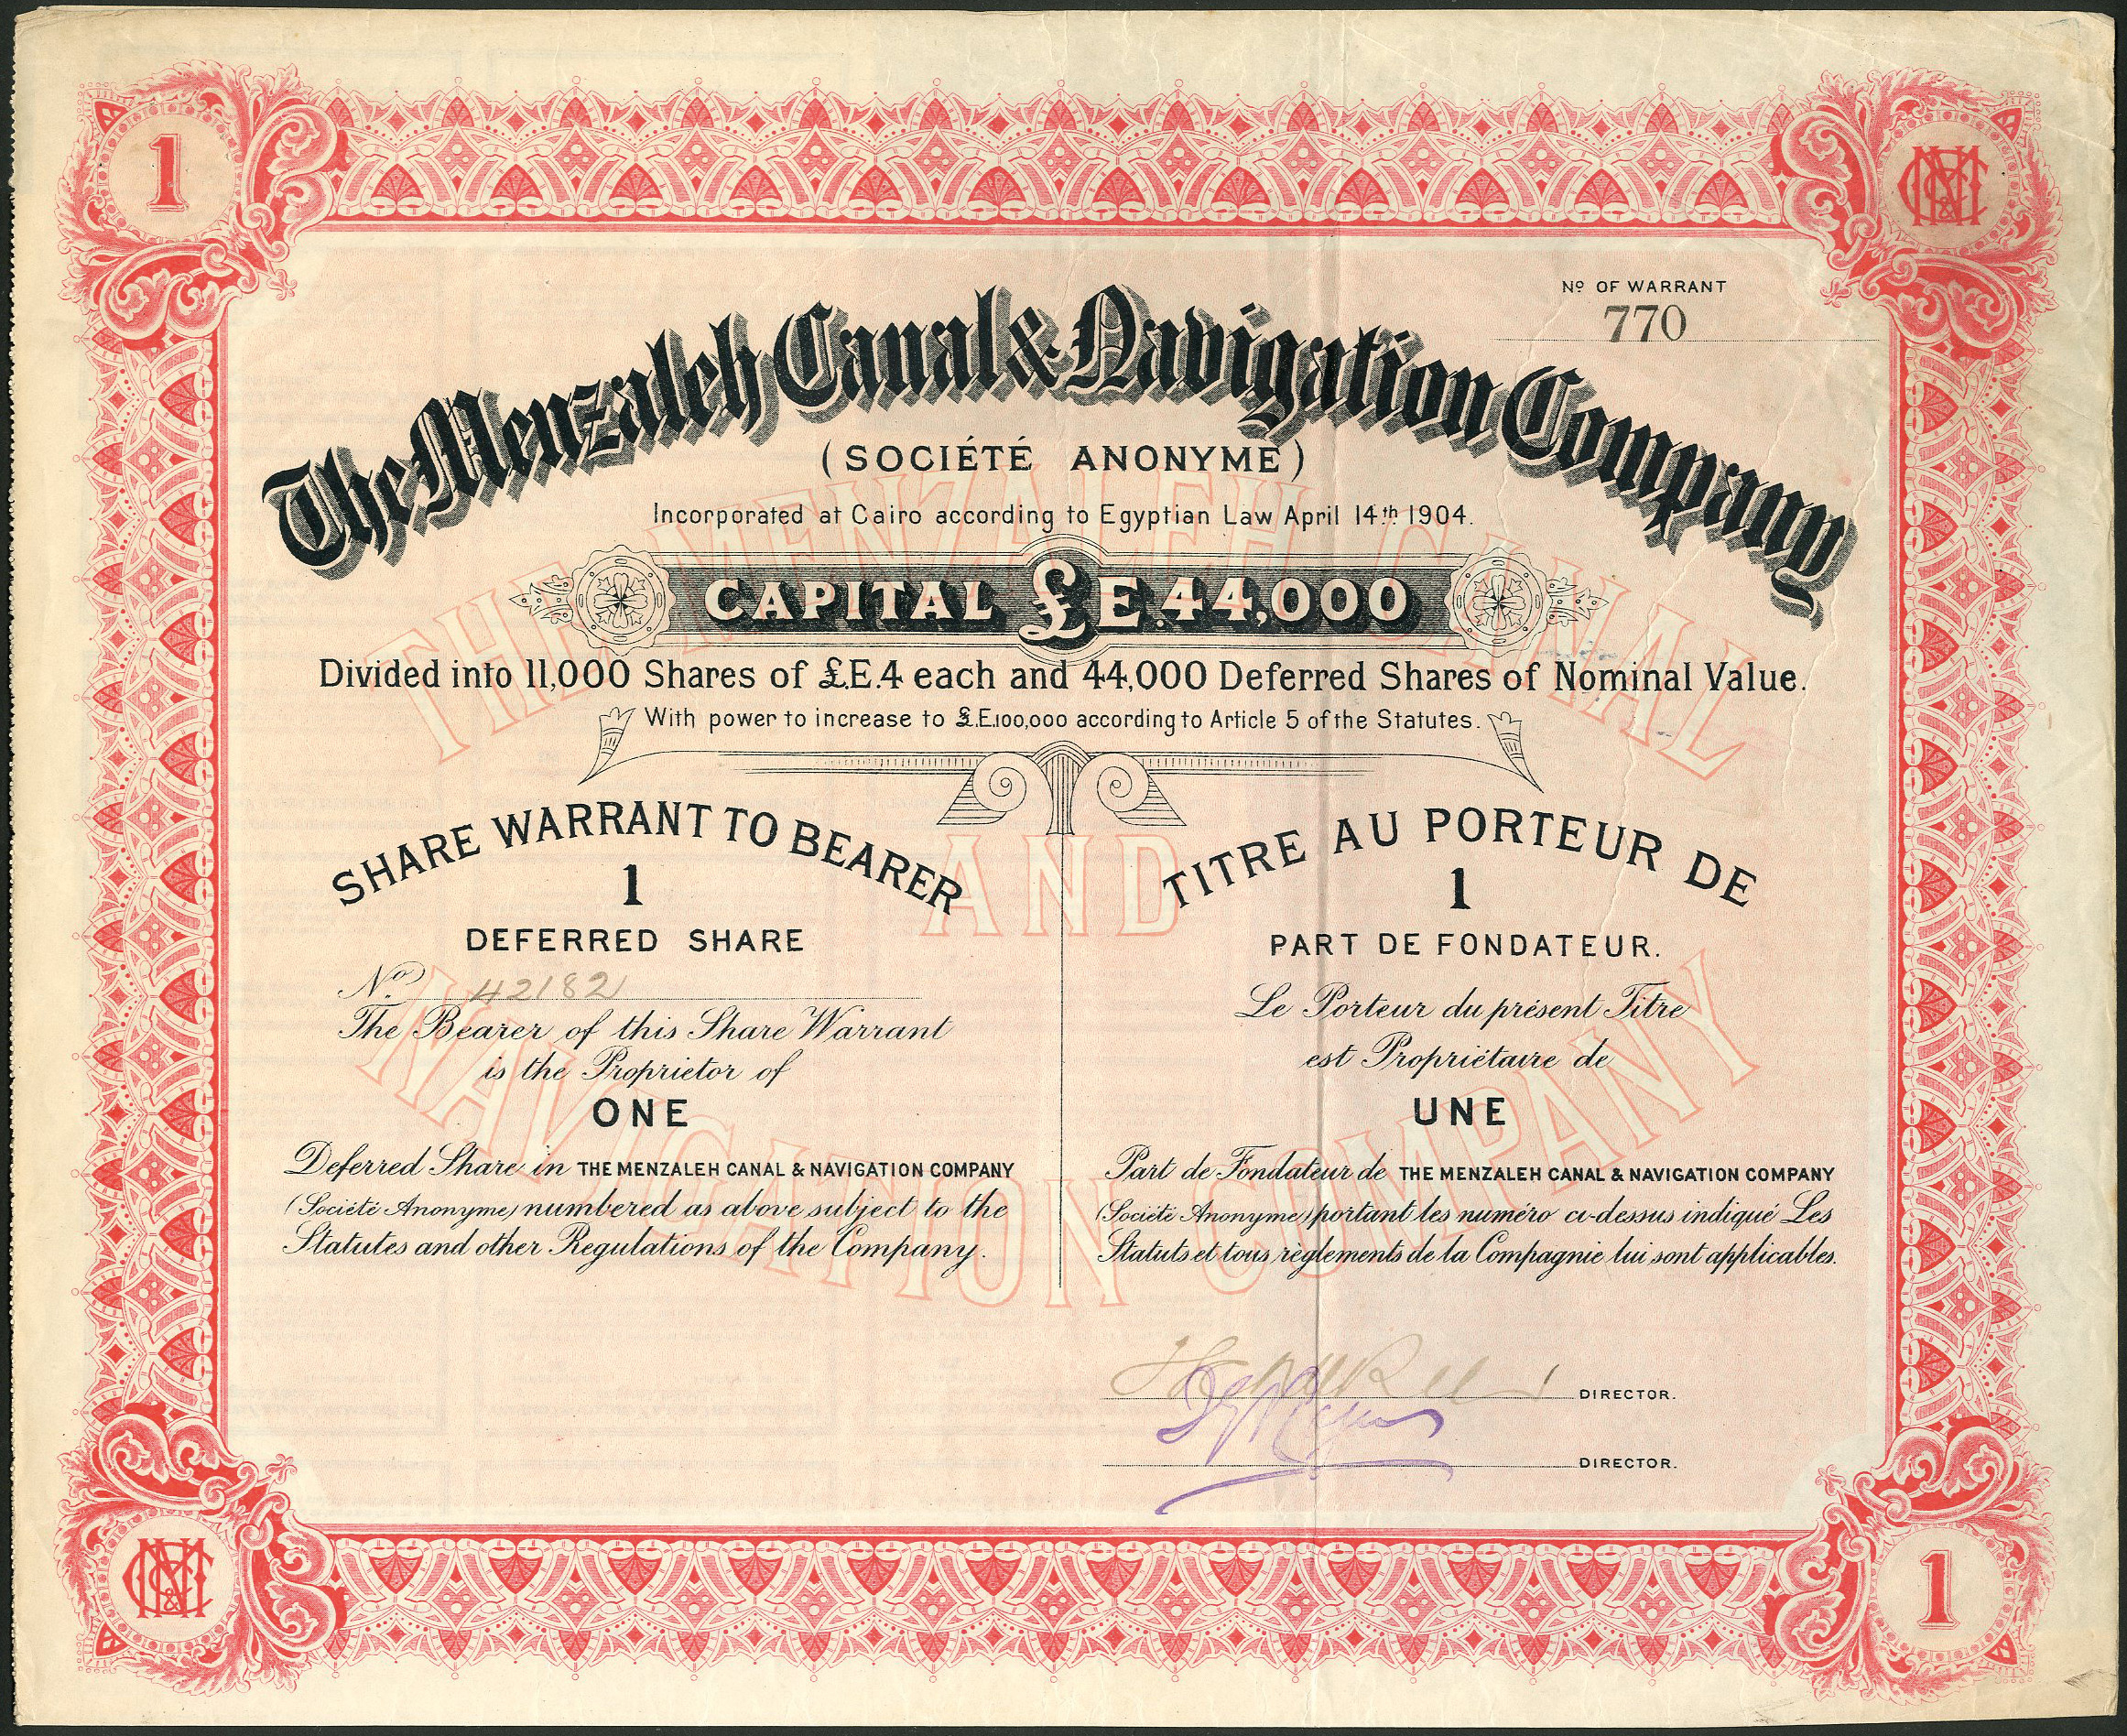 1
Nº OF WARRANT
770
The Menzaleh Canal & Navigation Company
(SOCIÉTÉ ANONYME)
Incorporated at Cairo according to Egyptian Law April 14th 1904.
CAPITAL £E.44,000
Divided into 11,000 Shares of £.E.4 each and 44,000 Deferred Shares of Nominal Value.
With power to increase to £.E.100,000 according to Article 5 of the Statutes.
THE MENZALEH CANAL
AND
NAVIGATION COMPANY
SHARE WARRANT TO BEARER
1
DEFERRED SHARE
No. 42182
The Bearer of this Share Warrant
is the Proprietor of
ONE
Deferred Share in THE MENZALEH CANAL & NAVIGATION COMPANY
(Société Anonyme) numbered as above subject to the
Statutes and other Regulations of the Company.
TITRE AU PORTEUR DE
1
PART DE FONDATEUR.
Le Porteur du présent Titre
est Propriétaire de
UNE
Part de Fondateur de THE MENZALEH CANAL & NAVIGATION COMPANY
(Société Anonyme) portant les numéro ci-dessus indiqué Les
Statuts et tous règlements de la Compagnie lui sont applicables.
DIRECTOR.
DIRECTOR.
1